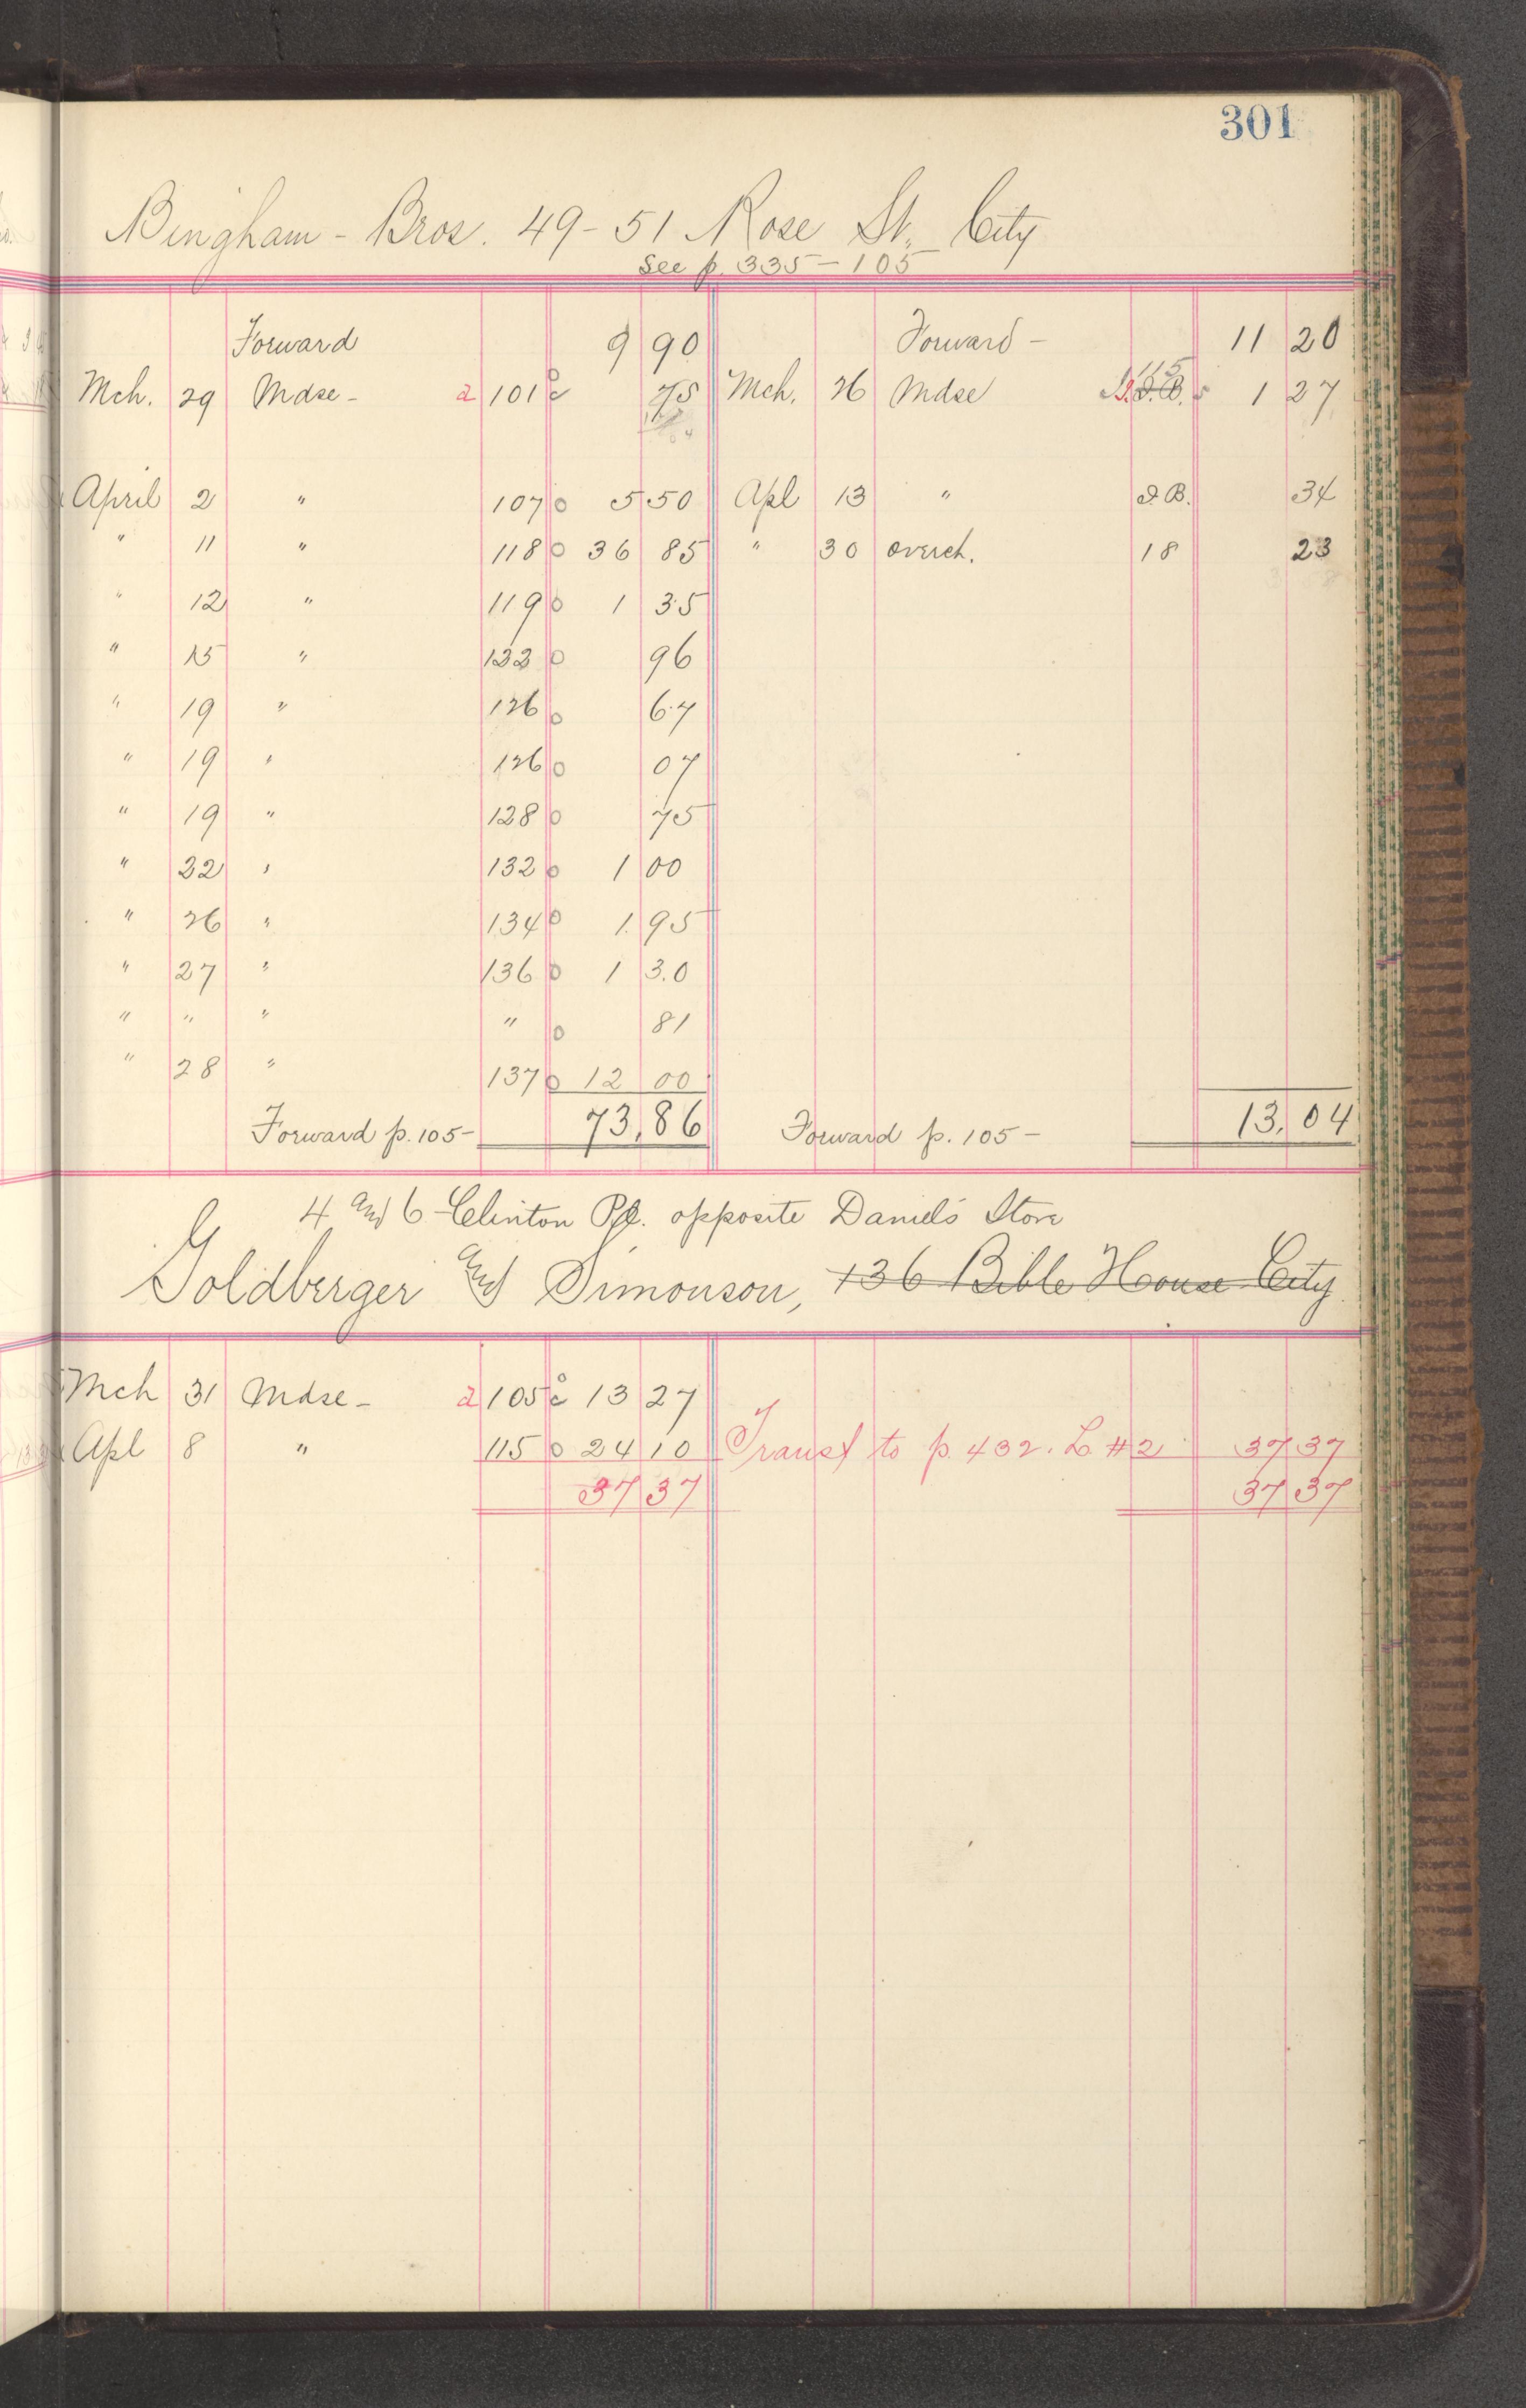 301
Bingham - Bros. 49-51 Rose St. City
See p. 335-105
Forward 9 90 Forward - 11 20
Mch. 29 Mdse - 2 101 c 75 Mch. 26 Mdse 115 I.B. 1 27
April 2 " 107 0 5 50 Apl 13 " I.B. 34
" 11 " 118 0 36 85 " 30 overch. 18 23
" 12 " 119 0 1 35
" 15 " 122 0 96
" 19 " 126 0 67
" 19 " 126 0 07
" 19 " 128 0 75
" 22 " 132 0 1 00
" 26 " 134 0 1 95
" 27 " 136 0 1 30
" " " " 0 81
" 28 " 137 0 12 00
Forward p. 105 - 73,86 Forward p. 105 - 13,04
4 and 6 Clinton Pl. opposite Daniels Store
Goldberger and Simonson, 136 Bible House City
Mch 31 Mdse - 2 105 c 13 27
Apl 8 " 115 0 24 10 Transf to p. 432. L #2 37 37
37 37 37 37